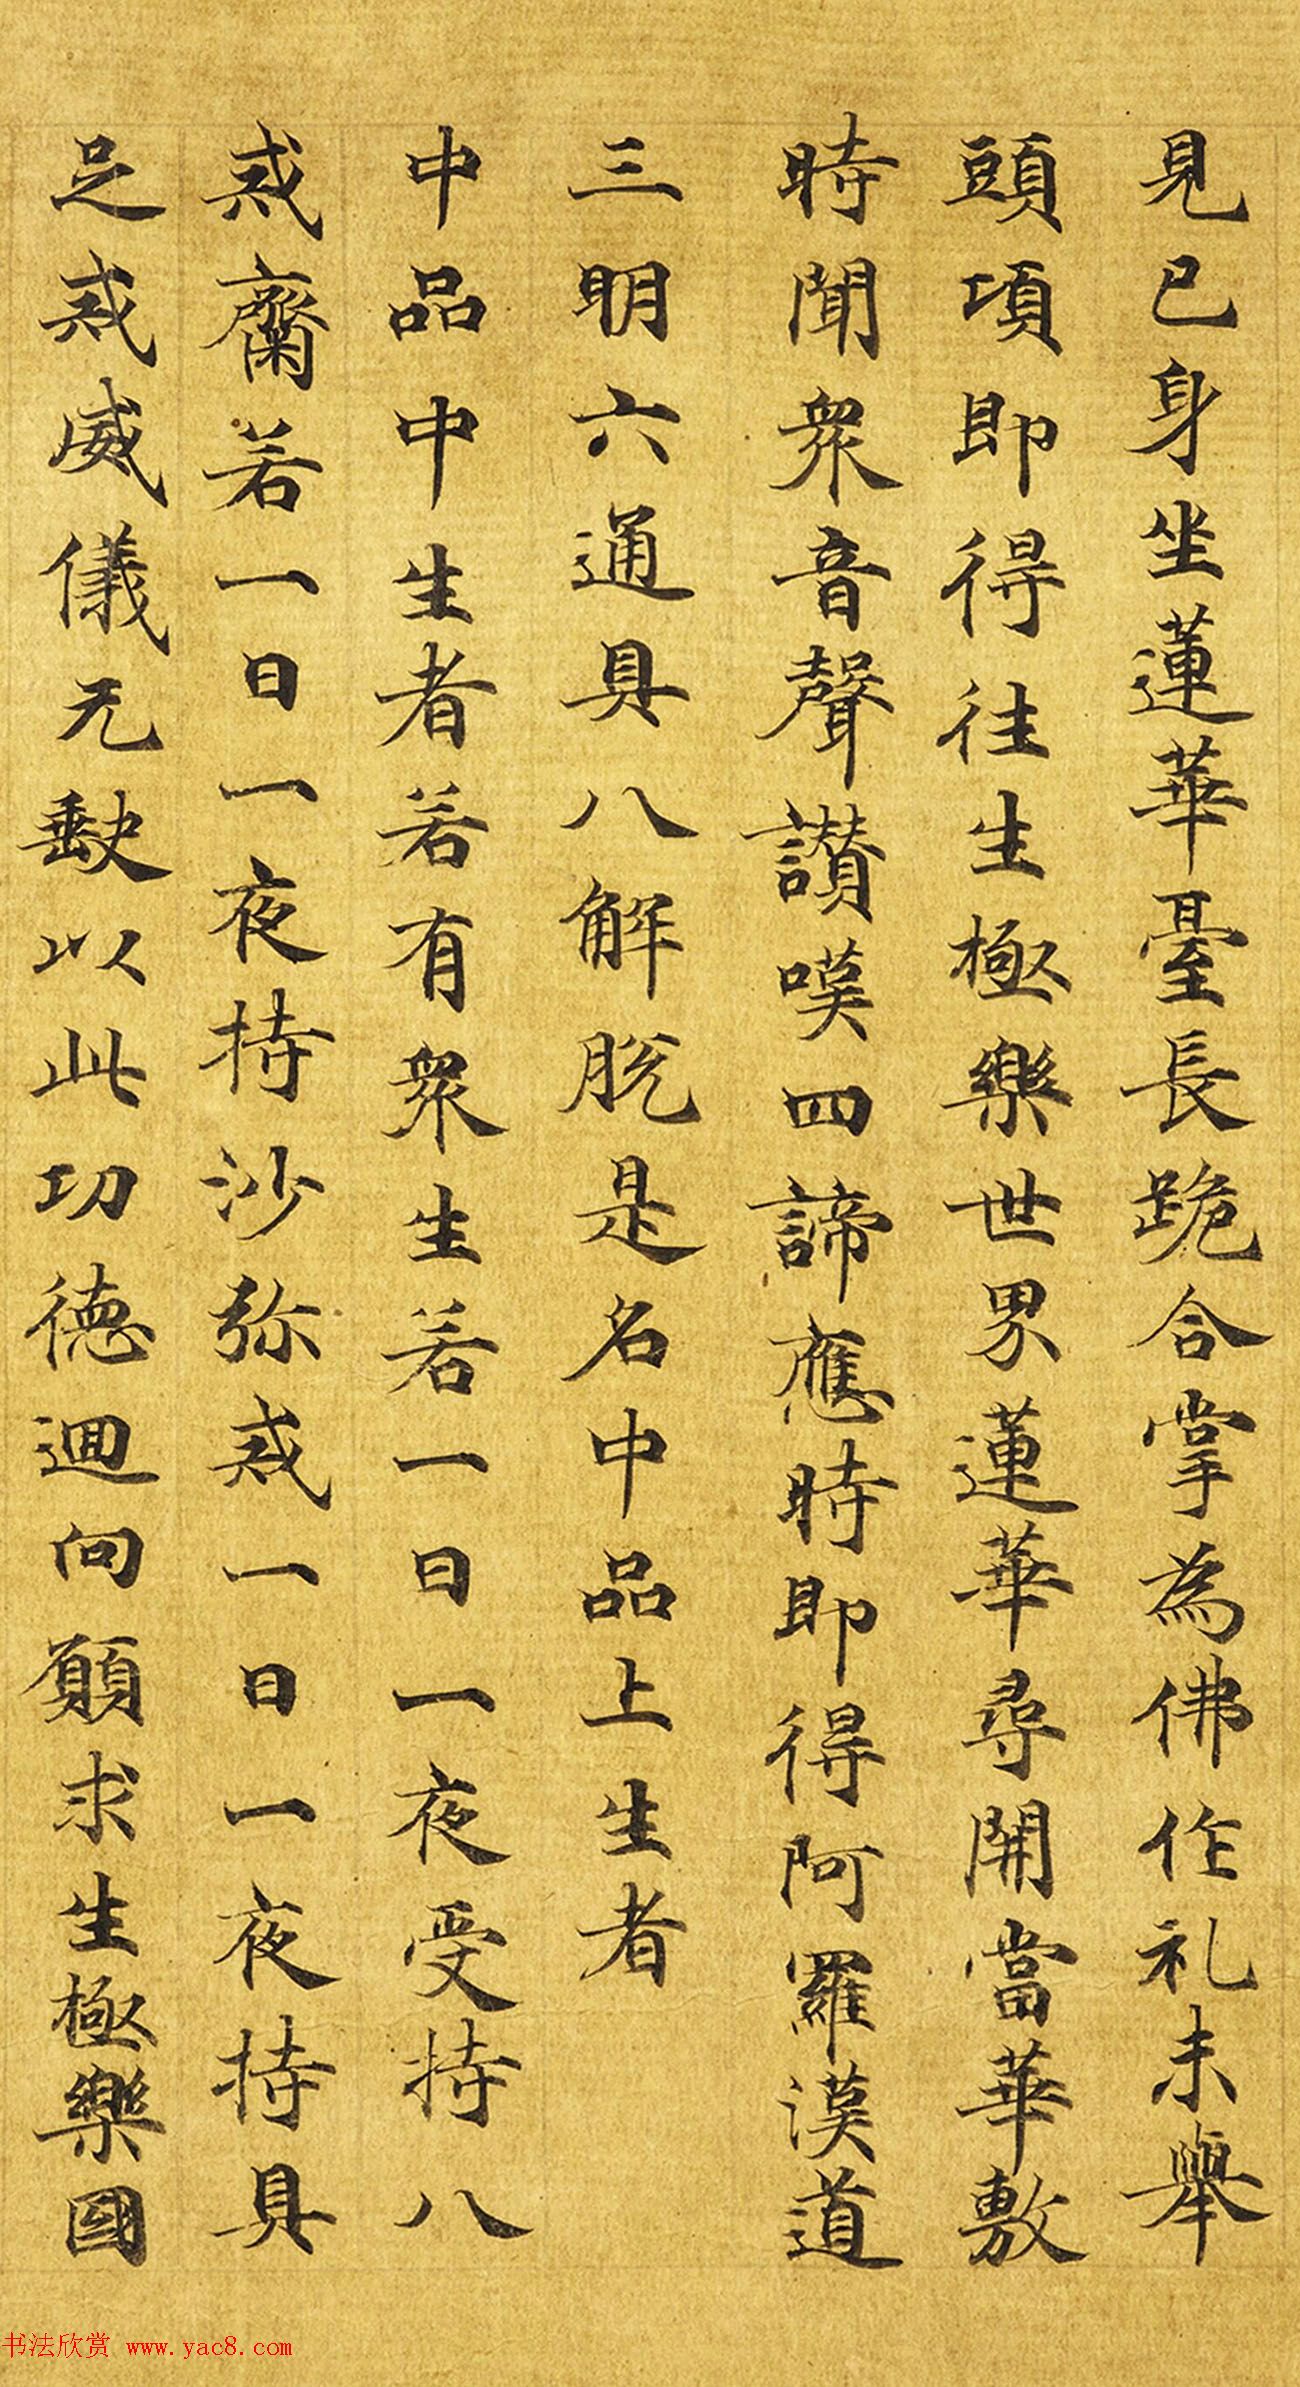 見已身坐蓮華臺長跪合掌為佛作礼未舉
頭項即得往生極樂世界蓮華尋開當華敷
時聞衆音聲讃嘆四諦應時即得阿羅漢道
三明六通具八解脫是名中品上生者
中品中生者若有衆生若一日一夜受持八
戒齋若一日一夜持沙弥戒一日一夜持具
足戒威儀无缺以此功德迴向願求生極樂國
书法欣赏 www.yac8.com